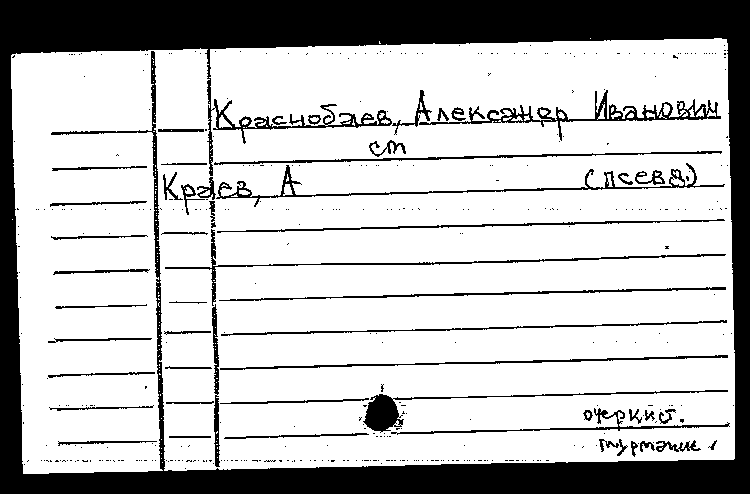 Краснобаев, Александр Иванович
см
Краев, А (псевд.)
очеркист.